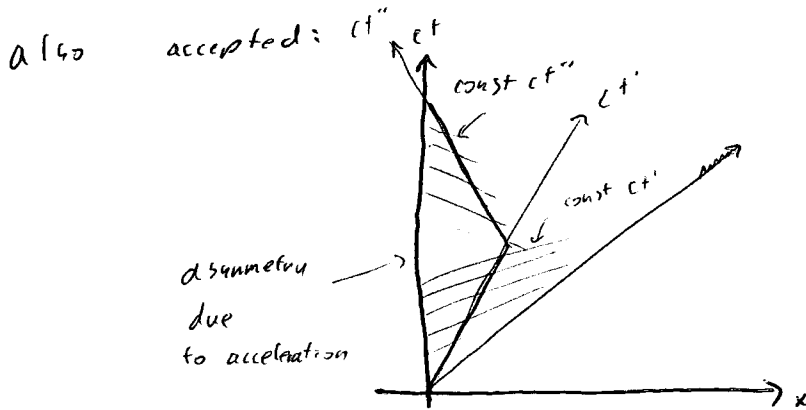 also accepted: ct" ct
const ct"
ct'
const ct'
asymmetry
due
to acceleration
x